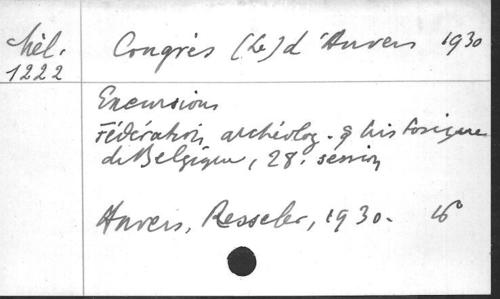 Mél.
1222
Congrès (Le) d'Anvers 1930
Excursions
Fédération archéolog. & historique
de Belgique, 28. session
Anvers, Resseler, 1930.